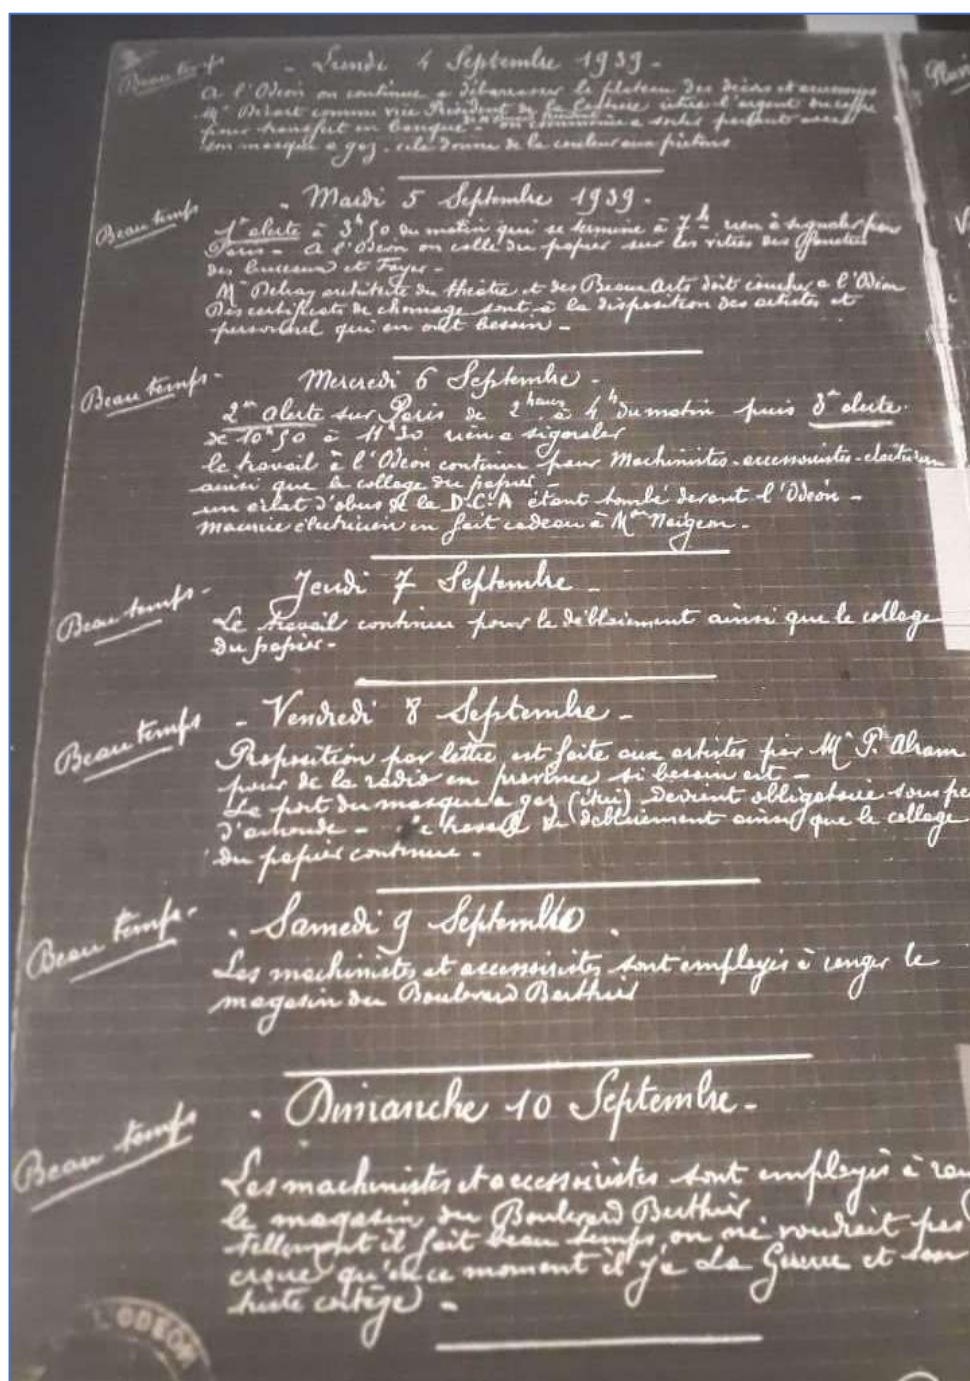 Beau temps
- Lundi 4 Septembre 1939 -
A l'Odéon on continue a débarrasser le plateau des décors et accessoires
Mr comme vice Président de la retire l'argent du coffre
pour transfert en banque - on commence a sortir partout avec
son masque a gaz. cela donne de la couleur aux piétons
Beau temps
- Mardi 5 Septembre 1939 -
1re alerte à 3h50 du matin qui se termine à 7h rien à signaler pour
Paris - A l'Odéon on colle du papier sur les vitres des
des bureaux et Foyer -
Mr architecte du théâtre et des Beaux Arts doit coucher a l'Odéon
Des certificats de chomage sont à la disposition des artistes et
personnel qui en ont besoin -
Beau temps -
Mercredi 6 Septembre -
2me alerte sur Paris de 2 heures à 4h du matin puis 3me alerte
de 10h50 à 11h30 rien a signaler
le travail à l'Odéon continue pour Machinistes - accessoiristes - électriciens
ainsi que le collage du papier -
un éclat d'obus de la D.C.A étant tombé devant l'Odéon -
électricien en fait cadeau à Mr Neigeon -
Beau temps -
Jeudi 7 Septembre -
Le travail continue pour le déblaiement ainsi que le collage
du papier -
Beau temps
- Vendredi 8 Septembre -
Proposition par lettre est faite aux artistes par Mr P. Abram
pour de la radio en province si besoin est -
Le port du masque a gaz (étui) devient obligatoire sous pe
d'amende - le travail de déblaiement ainsi que le collage
du papier continue -
Beau temps -
. Samedi 9 Septembre .
Les machinistes et accessoiristes sont employés à ranger le
magasin du Boulevard Berthier
Beau temps
. Dimanche 10 Septembre -
Les machinistes et accessoiristes sont employés à ran
le magasin du Boulevard Berthier
tellement il fait beau temps, on ne voudrait pas
croire qu'en ce moment il y'a La Guerre et son
triste cortège) -
L'ODÉON